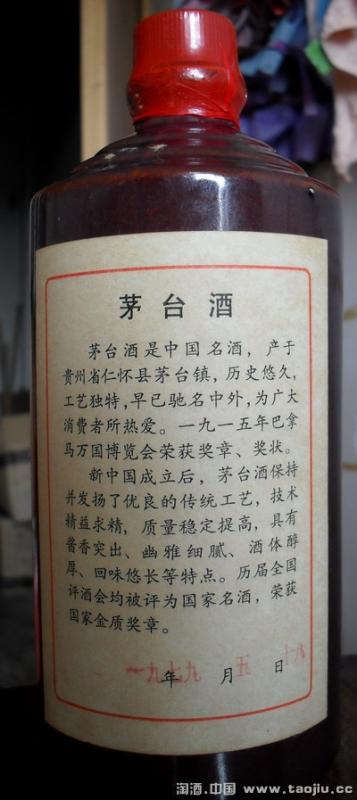 茅台酒
茅台酒是中国名酒，产于
贵州省仁怀县茅台镇，历史悠久，
工艺独特，早已驰名中外，为广大
消费者所热爱。一九一五年巴拿
马万国博览会荣获奖章、奖状。
新中国成立后，茅台酒保持
并发扬了优良的传统工艺，技术
精益求精，质量稳定提高，具有
酱香突出、幽雅细腻、酒体醇
厚、回味悠长等特点。历届全国
评酒会均被评为国家名酒，荣获
国家金质奖章。
一九七九年 月五 日十八
淘酒.中国 www.taojiu.cc